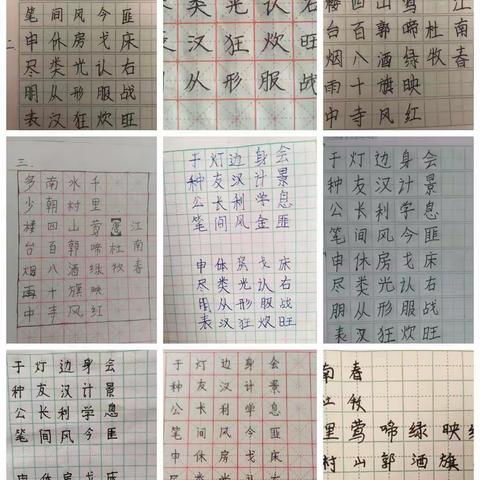 笔间风今匪
申休房戈床
尽类光认右
朋从形服战
表汉狂炊旺
尽类光认右
表汉狂炊旺
从形服
楼四山莺江
台百郭啼杜南
烟八酒绿牧春
雨十旗映
中寺风红
三、
多南水千
少朝村里
楼四山莺(属)江
台百郭啼杜南
烟八酒绿牧春
雨十旗映
中寺风红
于灯边身会
种友汉计景
公长利学息
笔间风金匪
申休房戈床
尽类光认右
用从形服战
表汉狂炊旺
于灯边身会
种友汉计景
公长利学息
笔间风今匪
申休房戈床
尽类光认右
朋从形服战
表汉狂炊旺
于灯边身会
种友汉计景
公长利学息
笔间风今匪
申休房戈床
于灯边身会
种友汉计景
公长利学息
笔间风今匪
申休房戈床
尽类光认右
南春
江牧
里莺啼绿映
村山郭酒旗